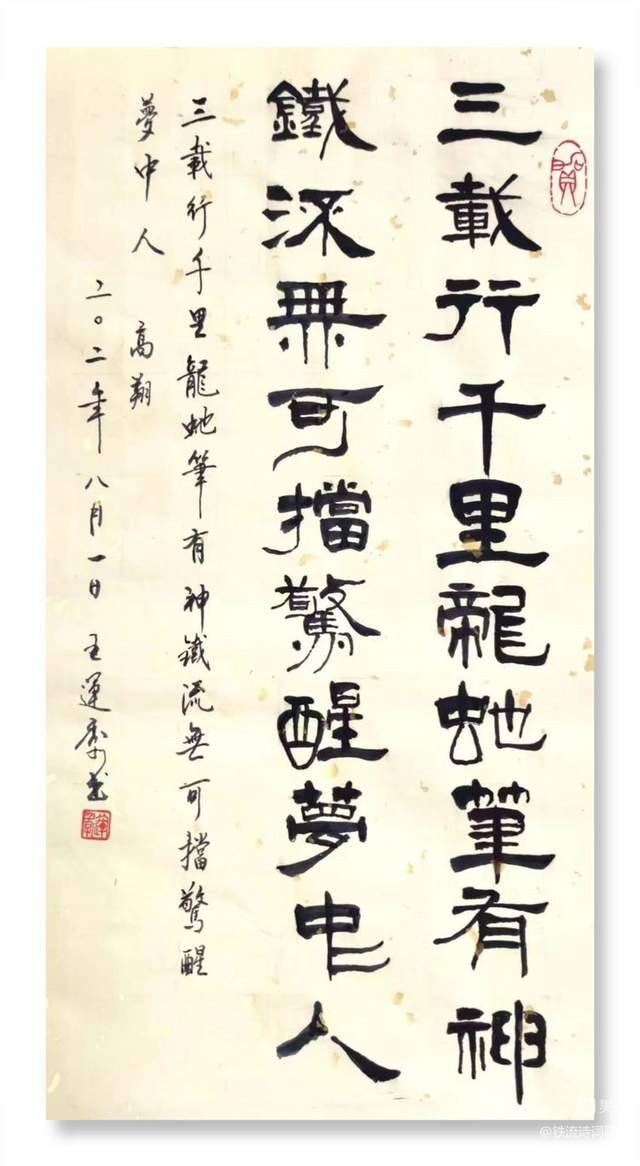 三載行千里龍虵筆有神
鐵流無可擋驚醒夢中人
三載行千里龍虵筆有神鐵流無可擋驚醒
夢中人 高翔
二〇二年八月一日 王運書
@铁流诗词